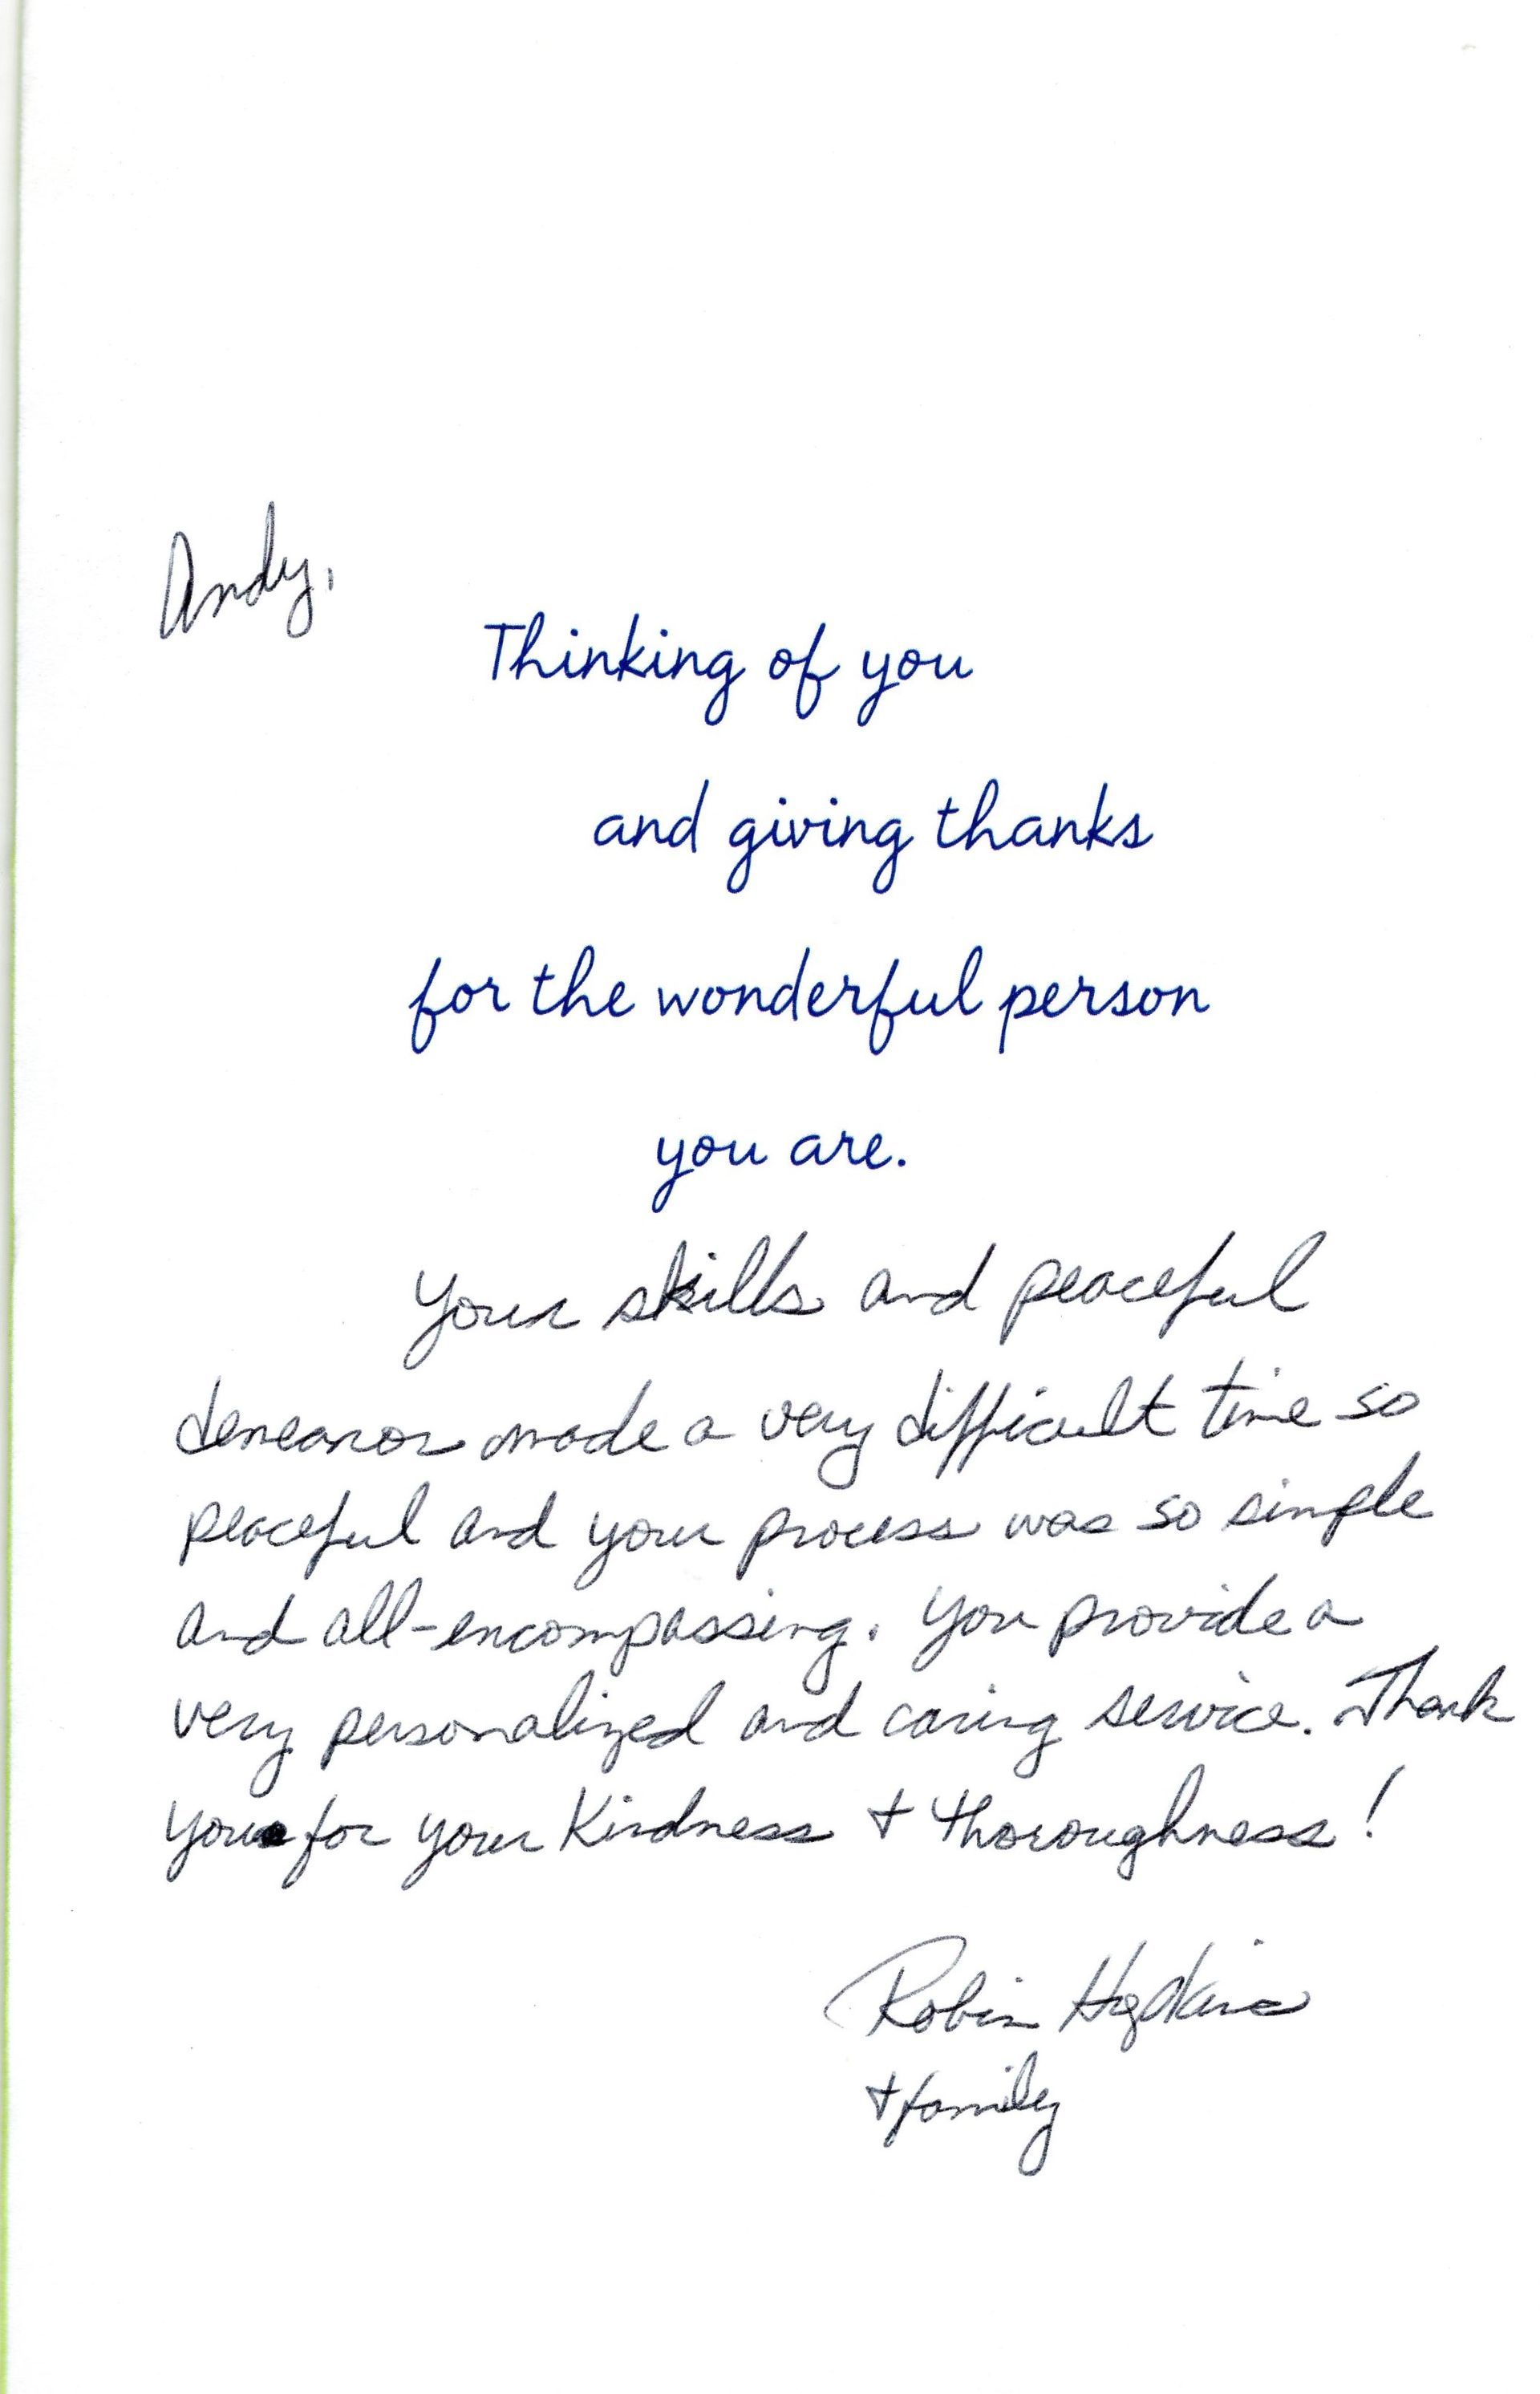 Andy,
Thinking of you
and giving thanks
for the wonderful person
you are.
Your skills and peaceful
demeanor made a very difficult time so
peaceful and your process was so simple
and all-encompassing. You provide a
very personalized and caring service. Thank
you for your kindness + thoroughness!
Robin
+ family